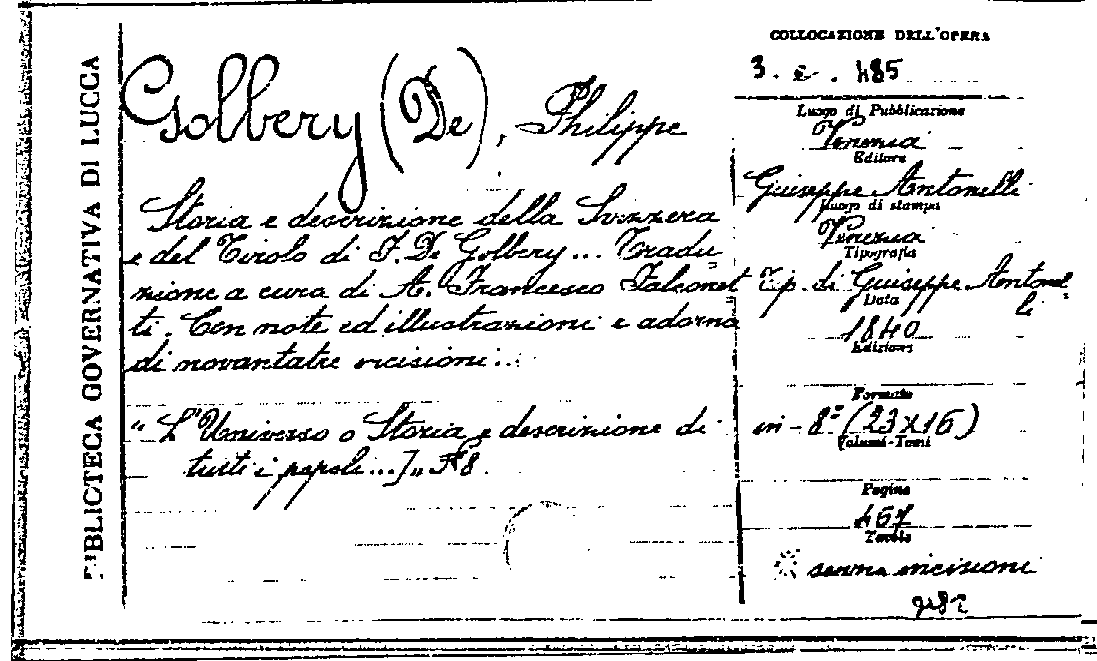 BIBLIOTECA GOVERNATIVA DI LUCCA
Golbery (De), Philippe
Storia e descrizione della Svizzera
e del Tirolo di F. De Golbery ... Tradu
zione a cura di A. Francesco Falconet
ti. Con note ed illustrazioni e adorna
di novantatre incisioni...
"L'Universo o Storia e descrizione di
tutti i popoli...]„ N° 8.
COLLOCAZIONE DELL'OPERA
485
Luogo di Pubblicazione
Venezia
Editore
Giuseppe Antonelli
Luogo di stampa
Venezia
Tipografia
Tip. di Giuseppe Antonel
li
Data
1840
Edizione
Formato
in-8° (23x16)
Volumi-Tomi
Pagine
467
Tavole
senza incisioni